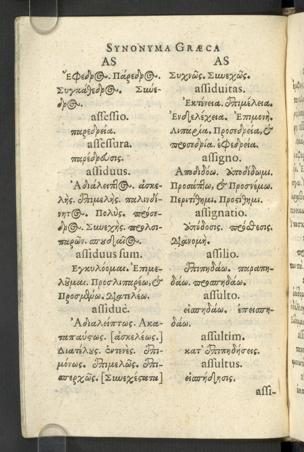 SYNONYMA GRÆCA
AS
Ἔφεδρος. Πάρεδρος.
Συγκάθεδρος. Σύνε-
δρος.
assessio.
παρεδρεία.
assessura.
παρέδρευσις.
assiduus.
Ἀδιάλειπτος. ἀσκε-
λής. ἐπιμελής. παλινδί-
νητος. Πολύς. πρόσε-
δρος. Συνεχής.
σπουδαῖος.
assiduus sum.
Ἐγκυλίομαι. Ἐπιμε-
λοῦμαι. Προσλιπαρέω, &
Προσμένω. Διατελέω.
assiduè.
Ἀδιαλείπτως. Ἀκα-
ταπαύστως. [ἀσκελέως.]
Διατέλους. ἐκτενές. ἐπι-
μόνως. Ἐπιμελῶς. ἐπι-
σπερχῶς. [Συνεχέστατα]
AS
Συχνῶς. Συνεχῶς.
assiduitas.
Ἐκτένεια. ἐπιμέλεια.
Ἐνδελέχεια. Ἐπιμονή.
Λιπαρία. Προσεδρεία, &
προσεδρία. ἐφεδρεία.
assigno.
Ἀποδίδωμι.
Προσάπτω, & Προσνέμω.
Περιτίθημι. Προστίθημι.
assignatio.
Ἐπίδοσις. πρόσθεσις.
Διανομή.
assilio.
Ἐπιπηδάω. παραπη-
δάω. προσπηδάω.
assulto.
εἰσπηδάω. ἐπεισπη-
δάω.
assultim.
κατ' ἐπιπηδήσεις.
assultus.
εἰσπήδησις.
assi-